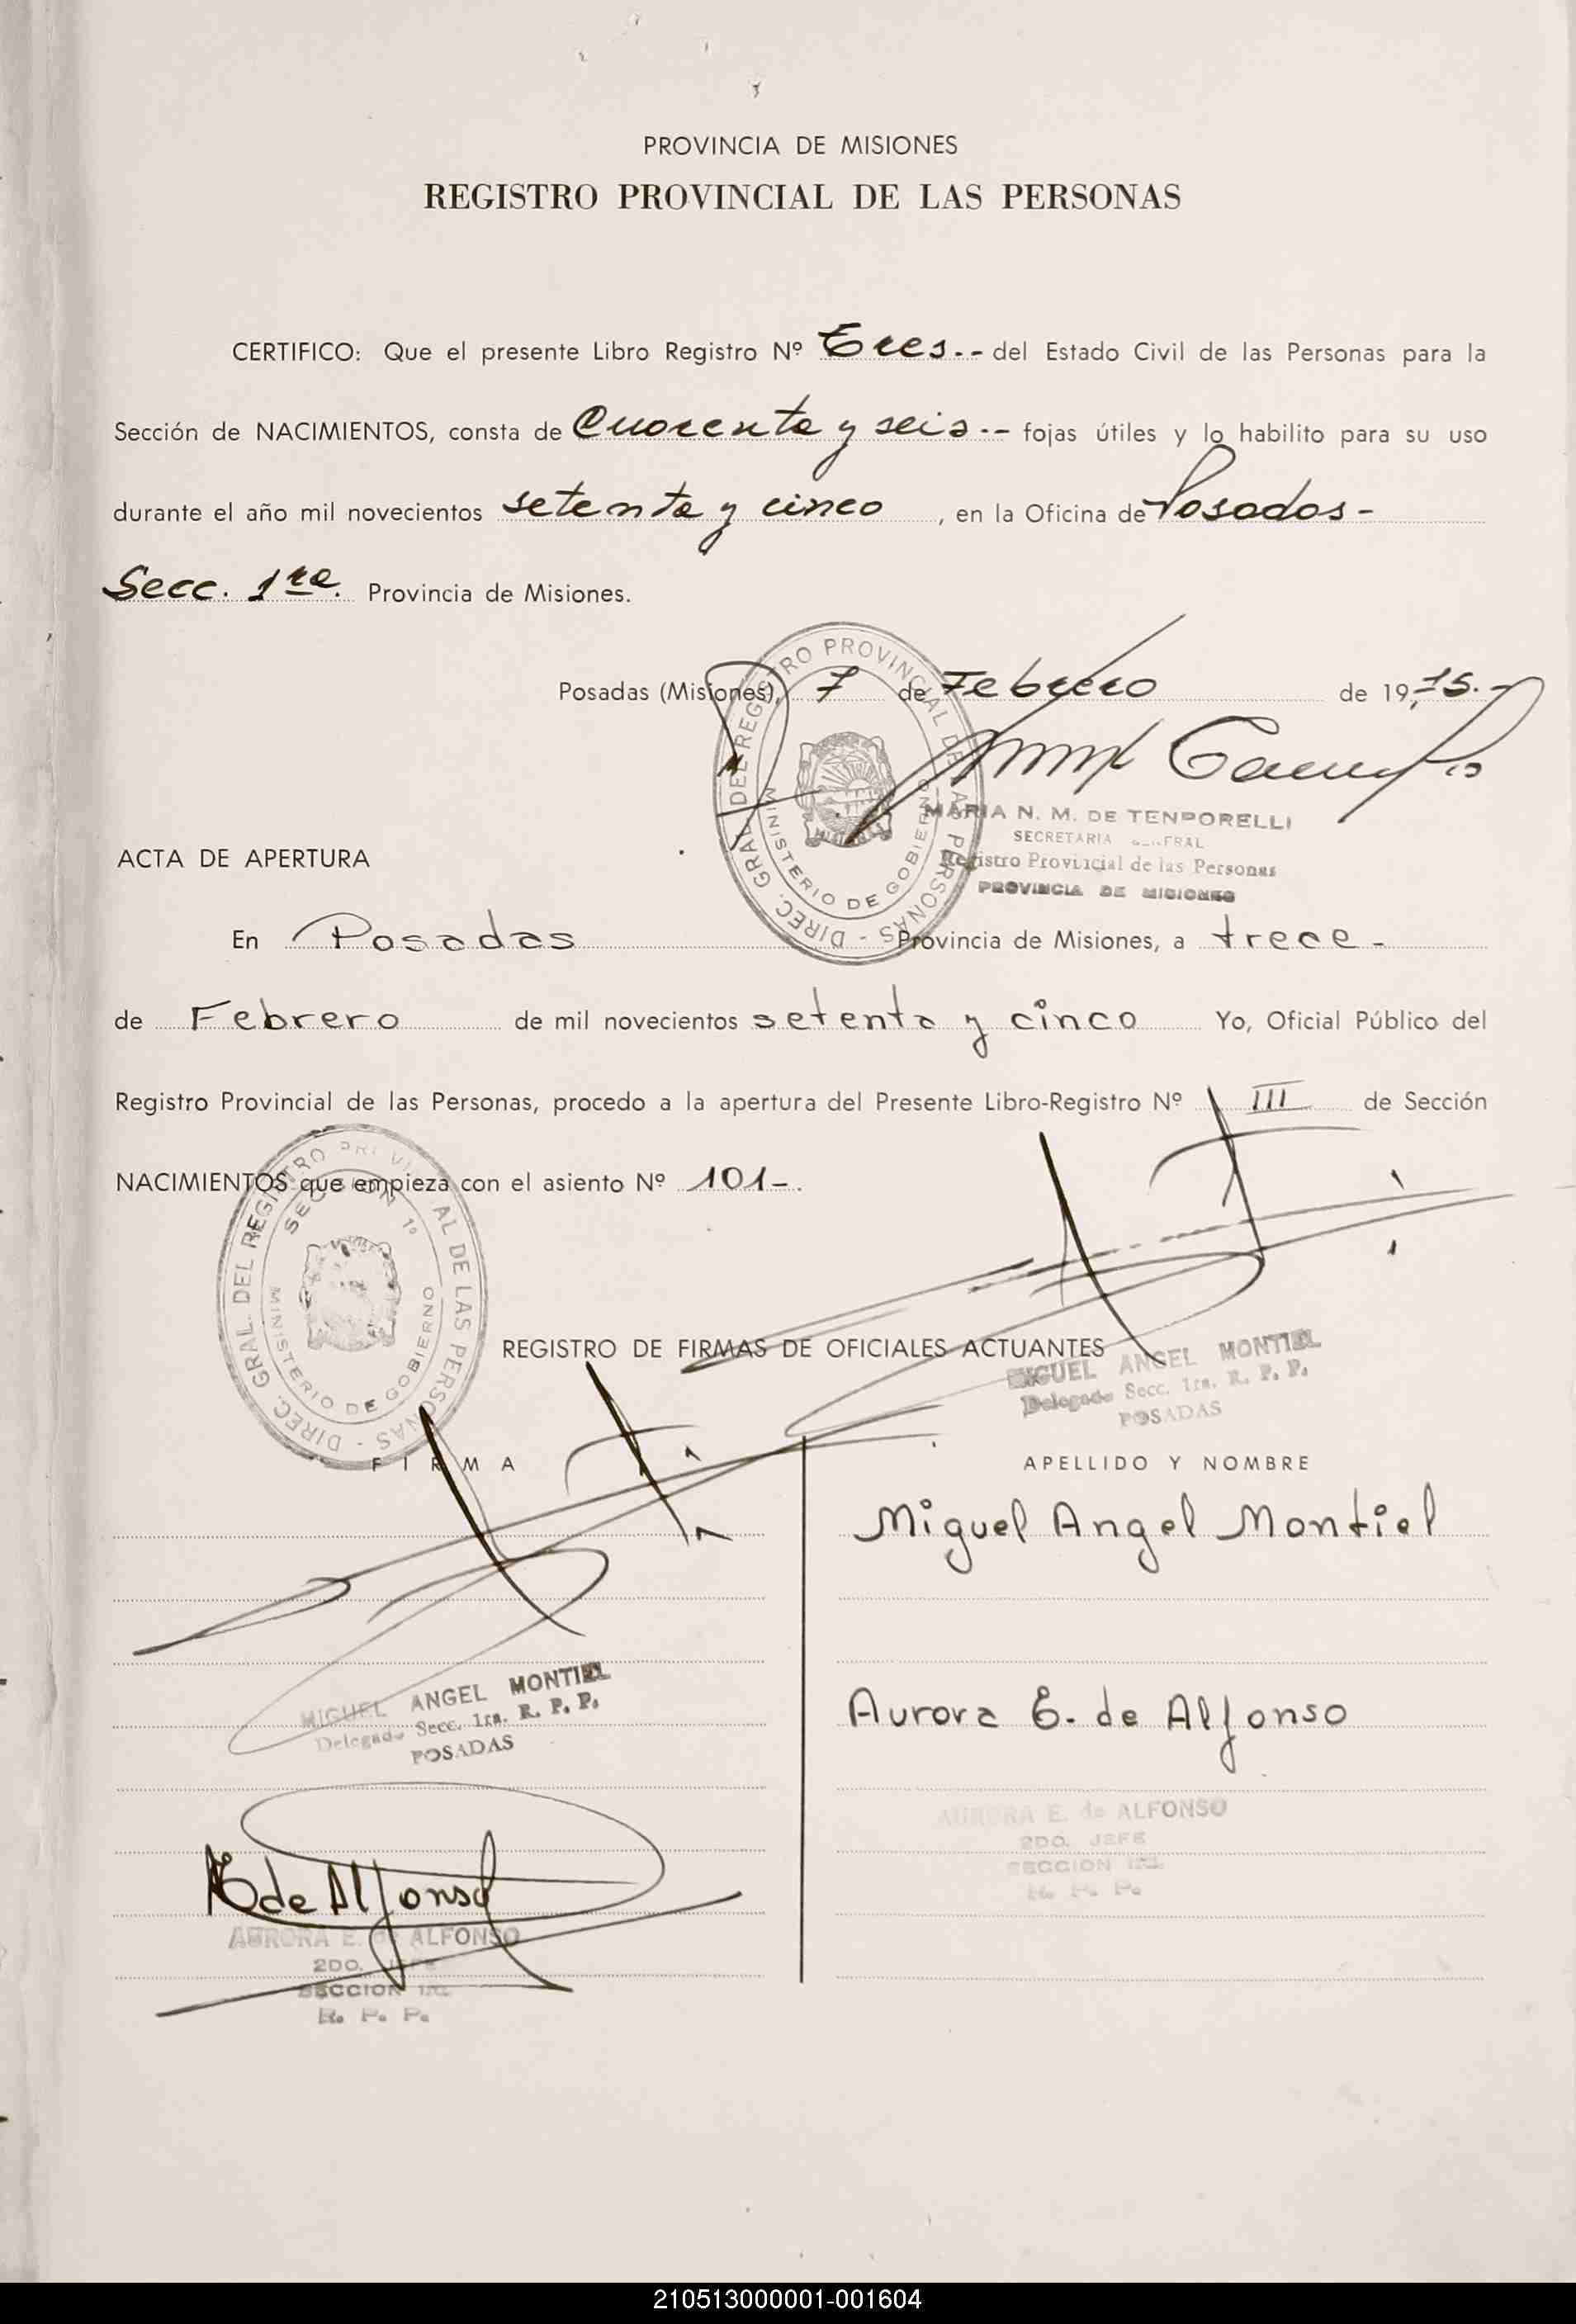 PROVINCIA DE MISIONES
REGISTRO PROVINCIAL DE LAS PERSONAS
CERTIFICO: Que el presente Libro Registro Nº Tres.- del Estado Civil de las Personas para la
Sección de NACIMIENTOS, consta de Cuarenta y seis.- fojas útiles y lo habilito para su uso
durante el año mil novecientos setenta y cinco, en la Oficina de Posadas-
Secc. 1ra. Provincia de Misiones.
Posadas (Misiones), 7 de Febrero de 1975.-
DIREC. GRAL. DEL REGISTRO PROVINCIAL DE LAS PERSONAS -
MINISTERIO DE GOBIERNO
MARIA N. M. DE TENPORELLI
SECRETARIA GENERAL
Registro Provincial de las Personas
PROVINCIA DE MISIONES
ACTA DE APERTURA
En Posadas Provincia de Misiones, a trece-
de Febrero de mil novecientos setenta y cinco Yo, Oficial Público del
Registro Provincial de las Personas, procedo a la apertura del Presente Libro-Registro Nº III de Sección
NACIMIENTOS que empieza con el asiento Nº 101-.
DIREC. GRAL. DEL REGISTRO PROVINCIAL DE LAS PERSONAS -
SECCION 1ª
MINISTERIO DE GOBIERNO
REGISTRO DE FIRMAS DE OFICIALES ACTUANTES
MIGUEL ANGEL MONTIEL
Delegado Secc. 1ra. R. P. P.
POSADAS
FIRMA
APELLIDO Y NOMBRE
Miguel Angel Montiel
MIGUEL ANGEL MONTIEL
Delegado Secc. 1ra. R. P. P.
POSADAS
Aurora E. de Alfonso
AURORA E. de ALFONSO
2DO. JEFE
SECCION 1ra.
R. P. P.
AE de Alfonso
AURORA E. de ALFONSO
2DO. JEFE
SECCION 1ra.
R. P. P.
210513000001-001604